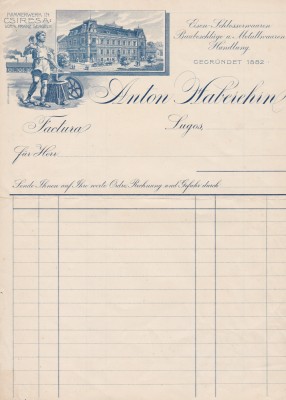 HAMMERWERK IN
CSIRESA
Eisen Schlosserwaaren
Baubeschläge u. Metallwaaren
Handlung
GEGRÜNDET 1882
Anton Haberehrn
Factura
Lugos
für Herr
Sende Ihnen auf Ihre werte Ordre, Rechnung und Gefahr durch